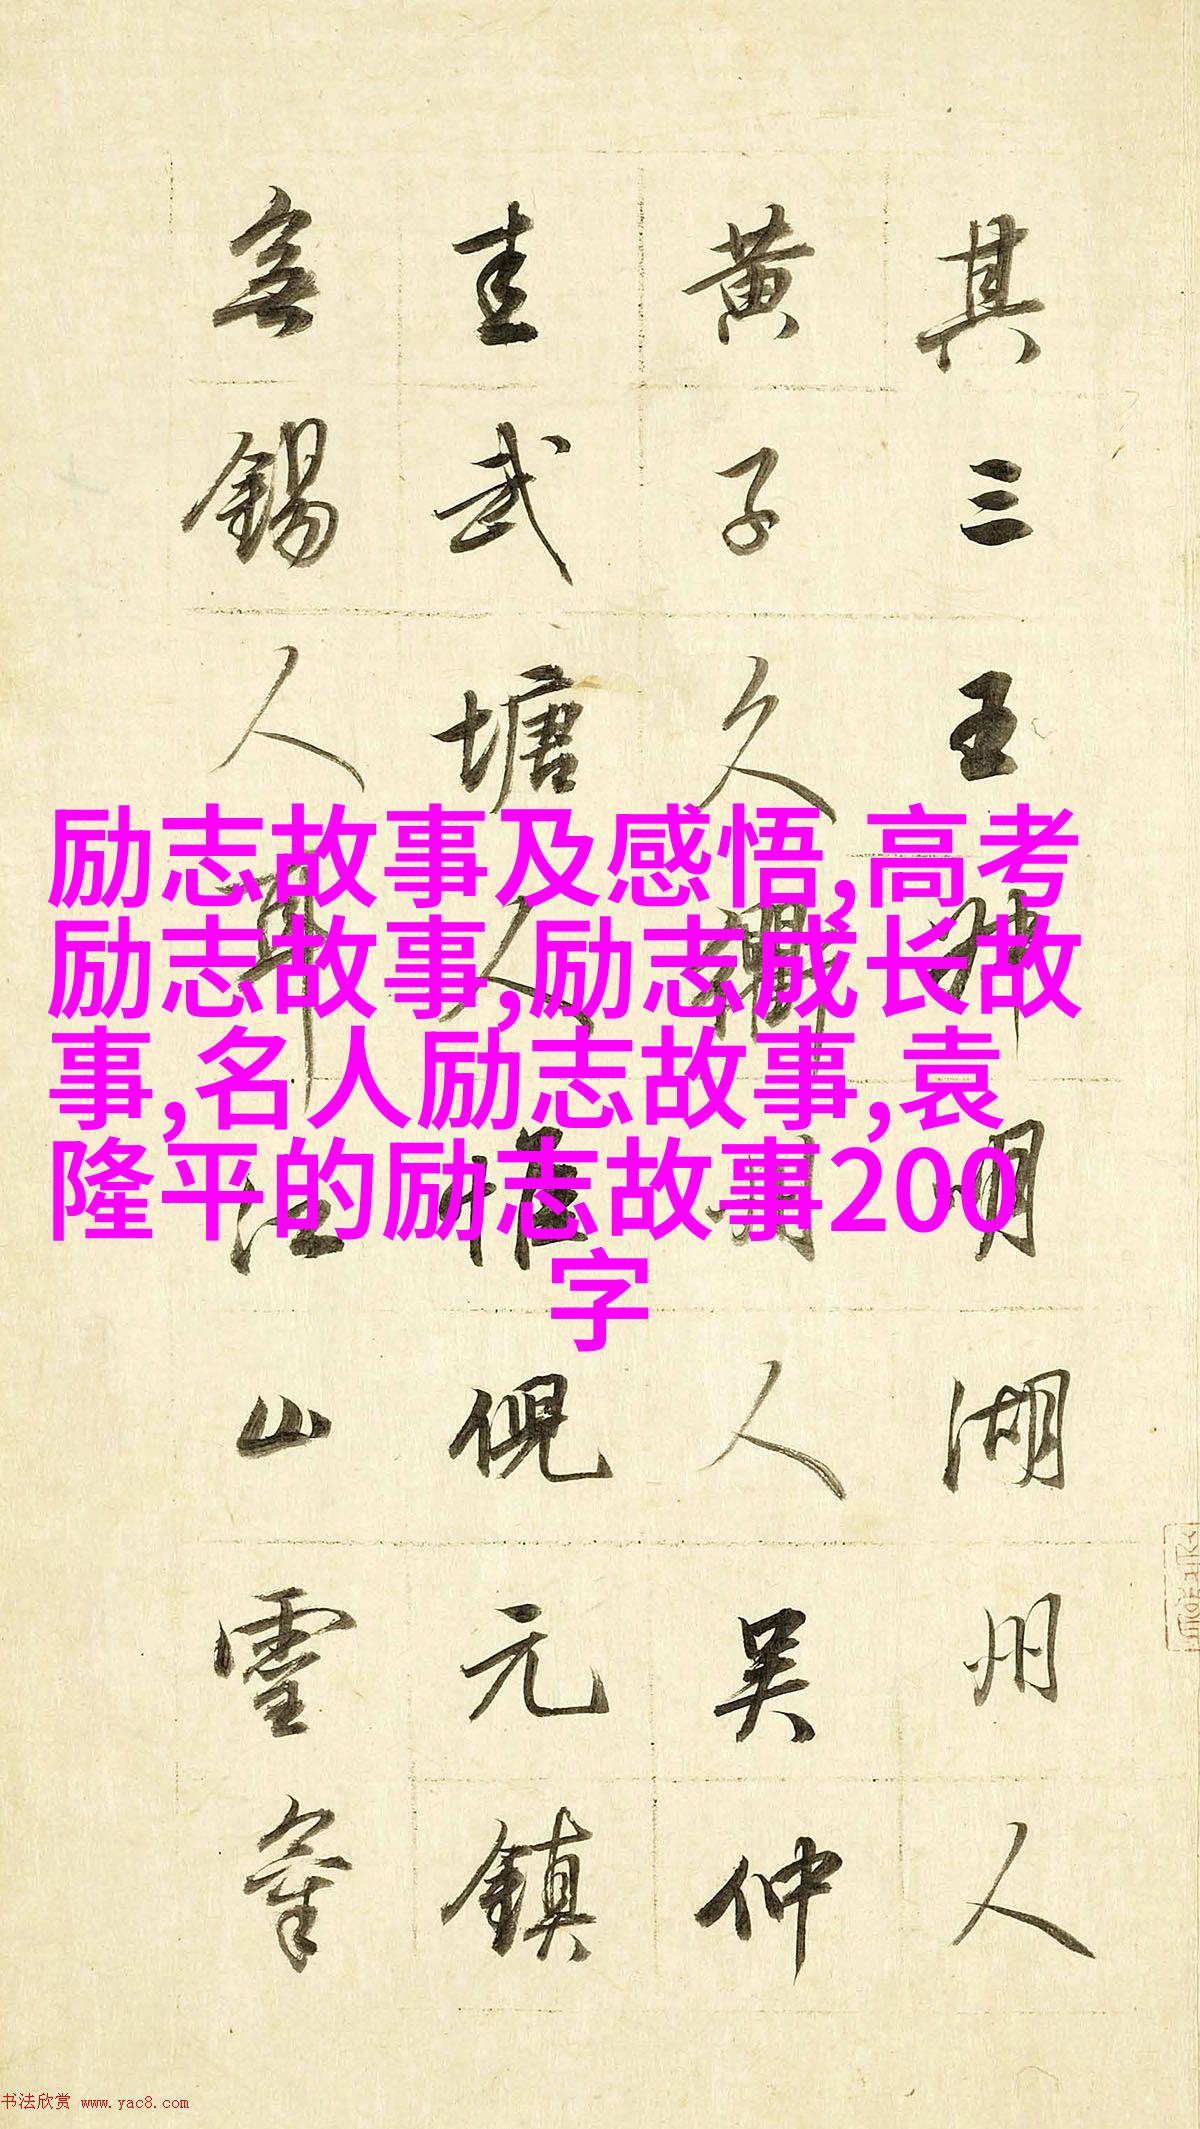 励志故事及感悟,高考
励志故事,励志成长故
事,名人励志故事,袁
隆平的励志故事200
字
其三王叔明湖州人
黄子久衢州人吴仲
圭武塘人惟倪元鎮
無錫人耳江山靈氣
书法欣赏 www.yac8.com